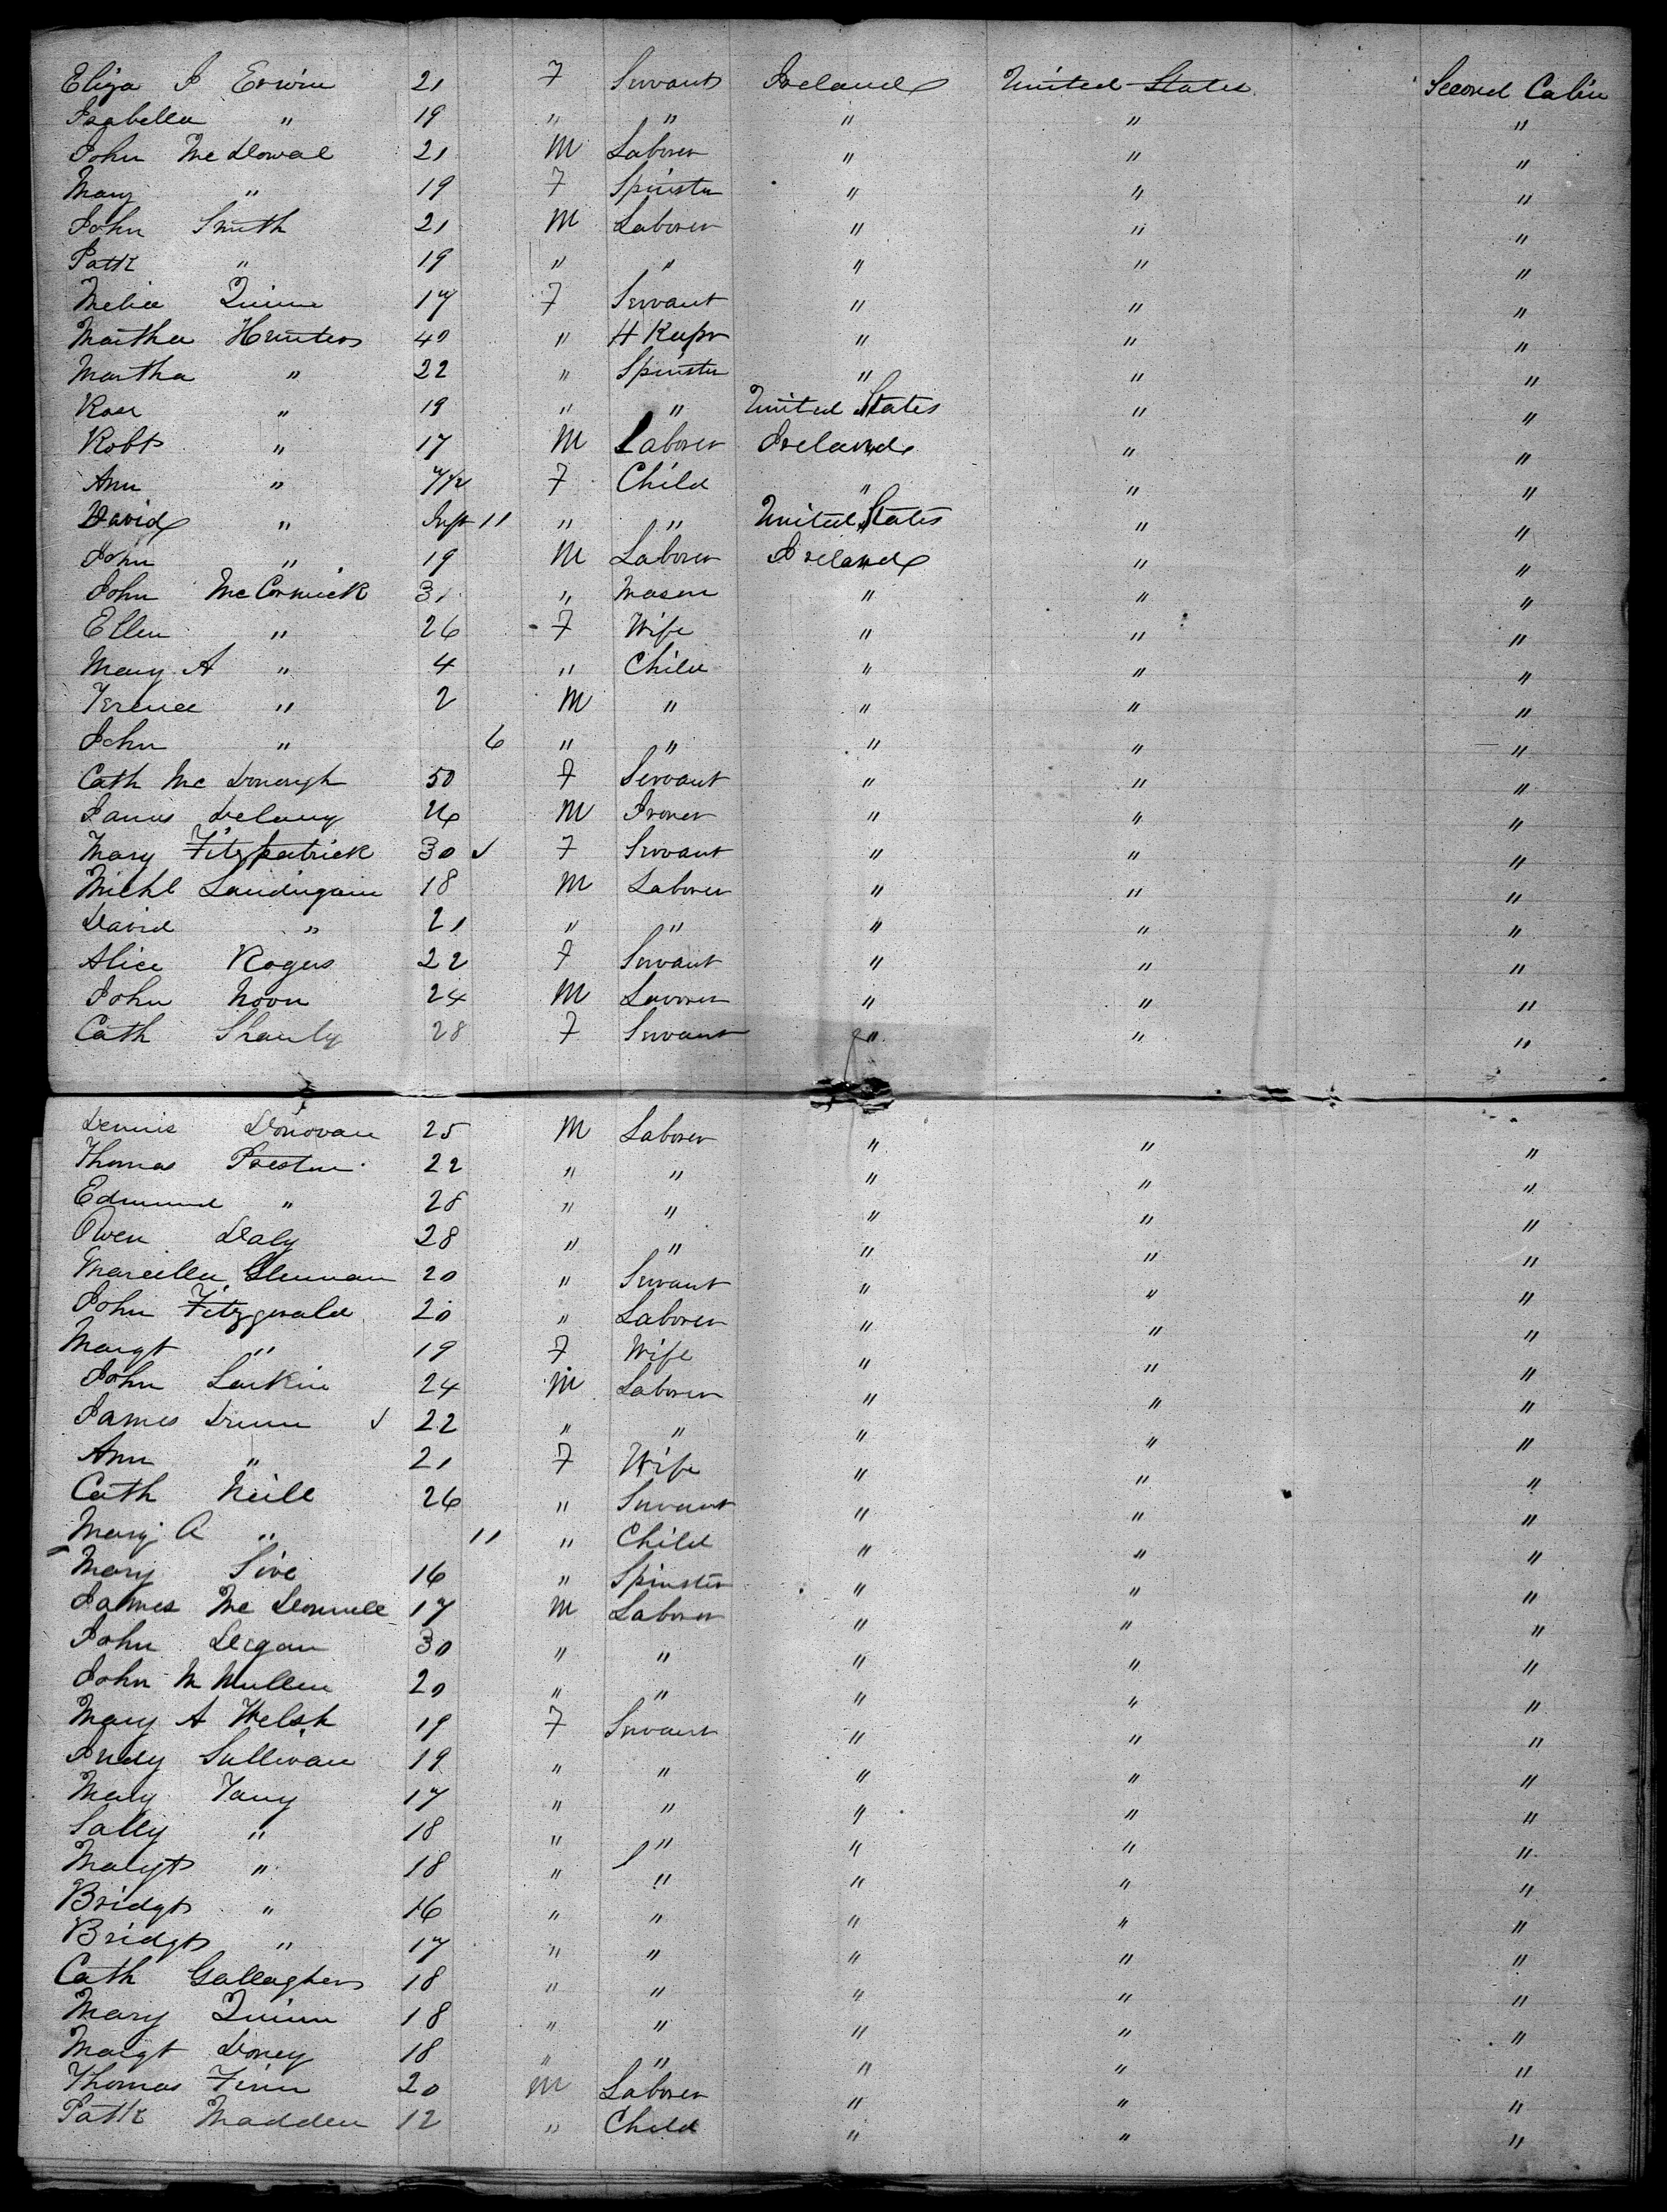 Eliza J Erwin 21 F Servant Ireland United States Second Cabin
Isabella " 19 " " " " "
John McDowal 21 M Laborer " " "
Mary " 19 F Spinster " " "
John Smith 21 M Laborer " " "
Patk " 19 " " " " "
Melia Quinn 17 F Servant " " "
Martha Hunter 40 " H Keepr " " "
Martha " 22 " Spinster " " "
Rose " 19 " " United States " "
Robt " 17 M Laborer Ireland " "
Ann " F Child " " "
David " Inft 11 " " United States " "
John " 19 M Laborer Ireland " "
John McCormick 31 " Mason " " "
Ellen " 26 F Wife " " "
Mary A " 4 " Child " " "
Terence " 2 M " " " "
John " 6 " " " " "
Cath McDonough 50 F Servant " " "
James Delany 26 M " " "
Mary Fitzpatrick 30 F Servant " " "
Michl 18 M Laborer " " "
David " 21 " " " " "
Alice Rogers 22 F Servant " " "
John Noon 24 M Laborer " " "
Cath Shanly 28 F Servant " " "
Dennis Donovan 25 M Laborer " " "
Thomas Preston 22 " " " " "
Edmund " 28 " " " " "
Owen Daly 28 " " " " "
Marcella Glennan 20 " Servant " " "
John Fitzgerald 20 " Laborer " " "
Margt " 19 F Wife " " "
John Larkin 24 M Laborer " " "
James Dunn 22 " " " " "
Ann " 21 F Wife " " "
Cath Neill 26 " Servant " " "
Mary A " 11 " Child " " "
Mary Sive 16 " Spinster " " "
James McDonnell 17 M Laborer " " "
John Degan 30 " " " " "
John M Mullen 20 " " " " "
Mary A Welsh 19 F Servant " " "
Judy Sullivan 19 " " " " "
Mary Tany 17 " " " " "
Sally " 18 " " " " "
Margt " 18 " " " " "
Bridgt " 16 " " " " "
Bridgt " 17 " " " " "
Cath Gallagher 18 " " " " "
Mary Quinn 18 " " " " "
Margt Doney 18 " " " " "
Thomas Finn 20 M Laborer " " "
Patk Madden 12 " Child " " "